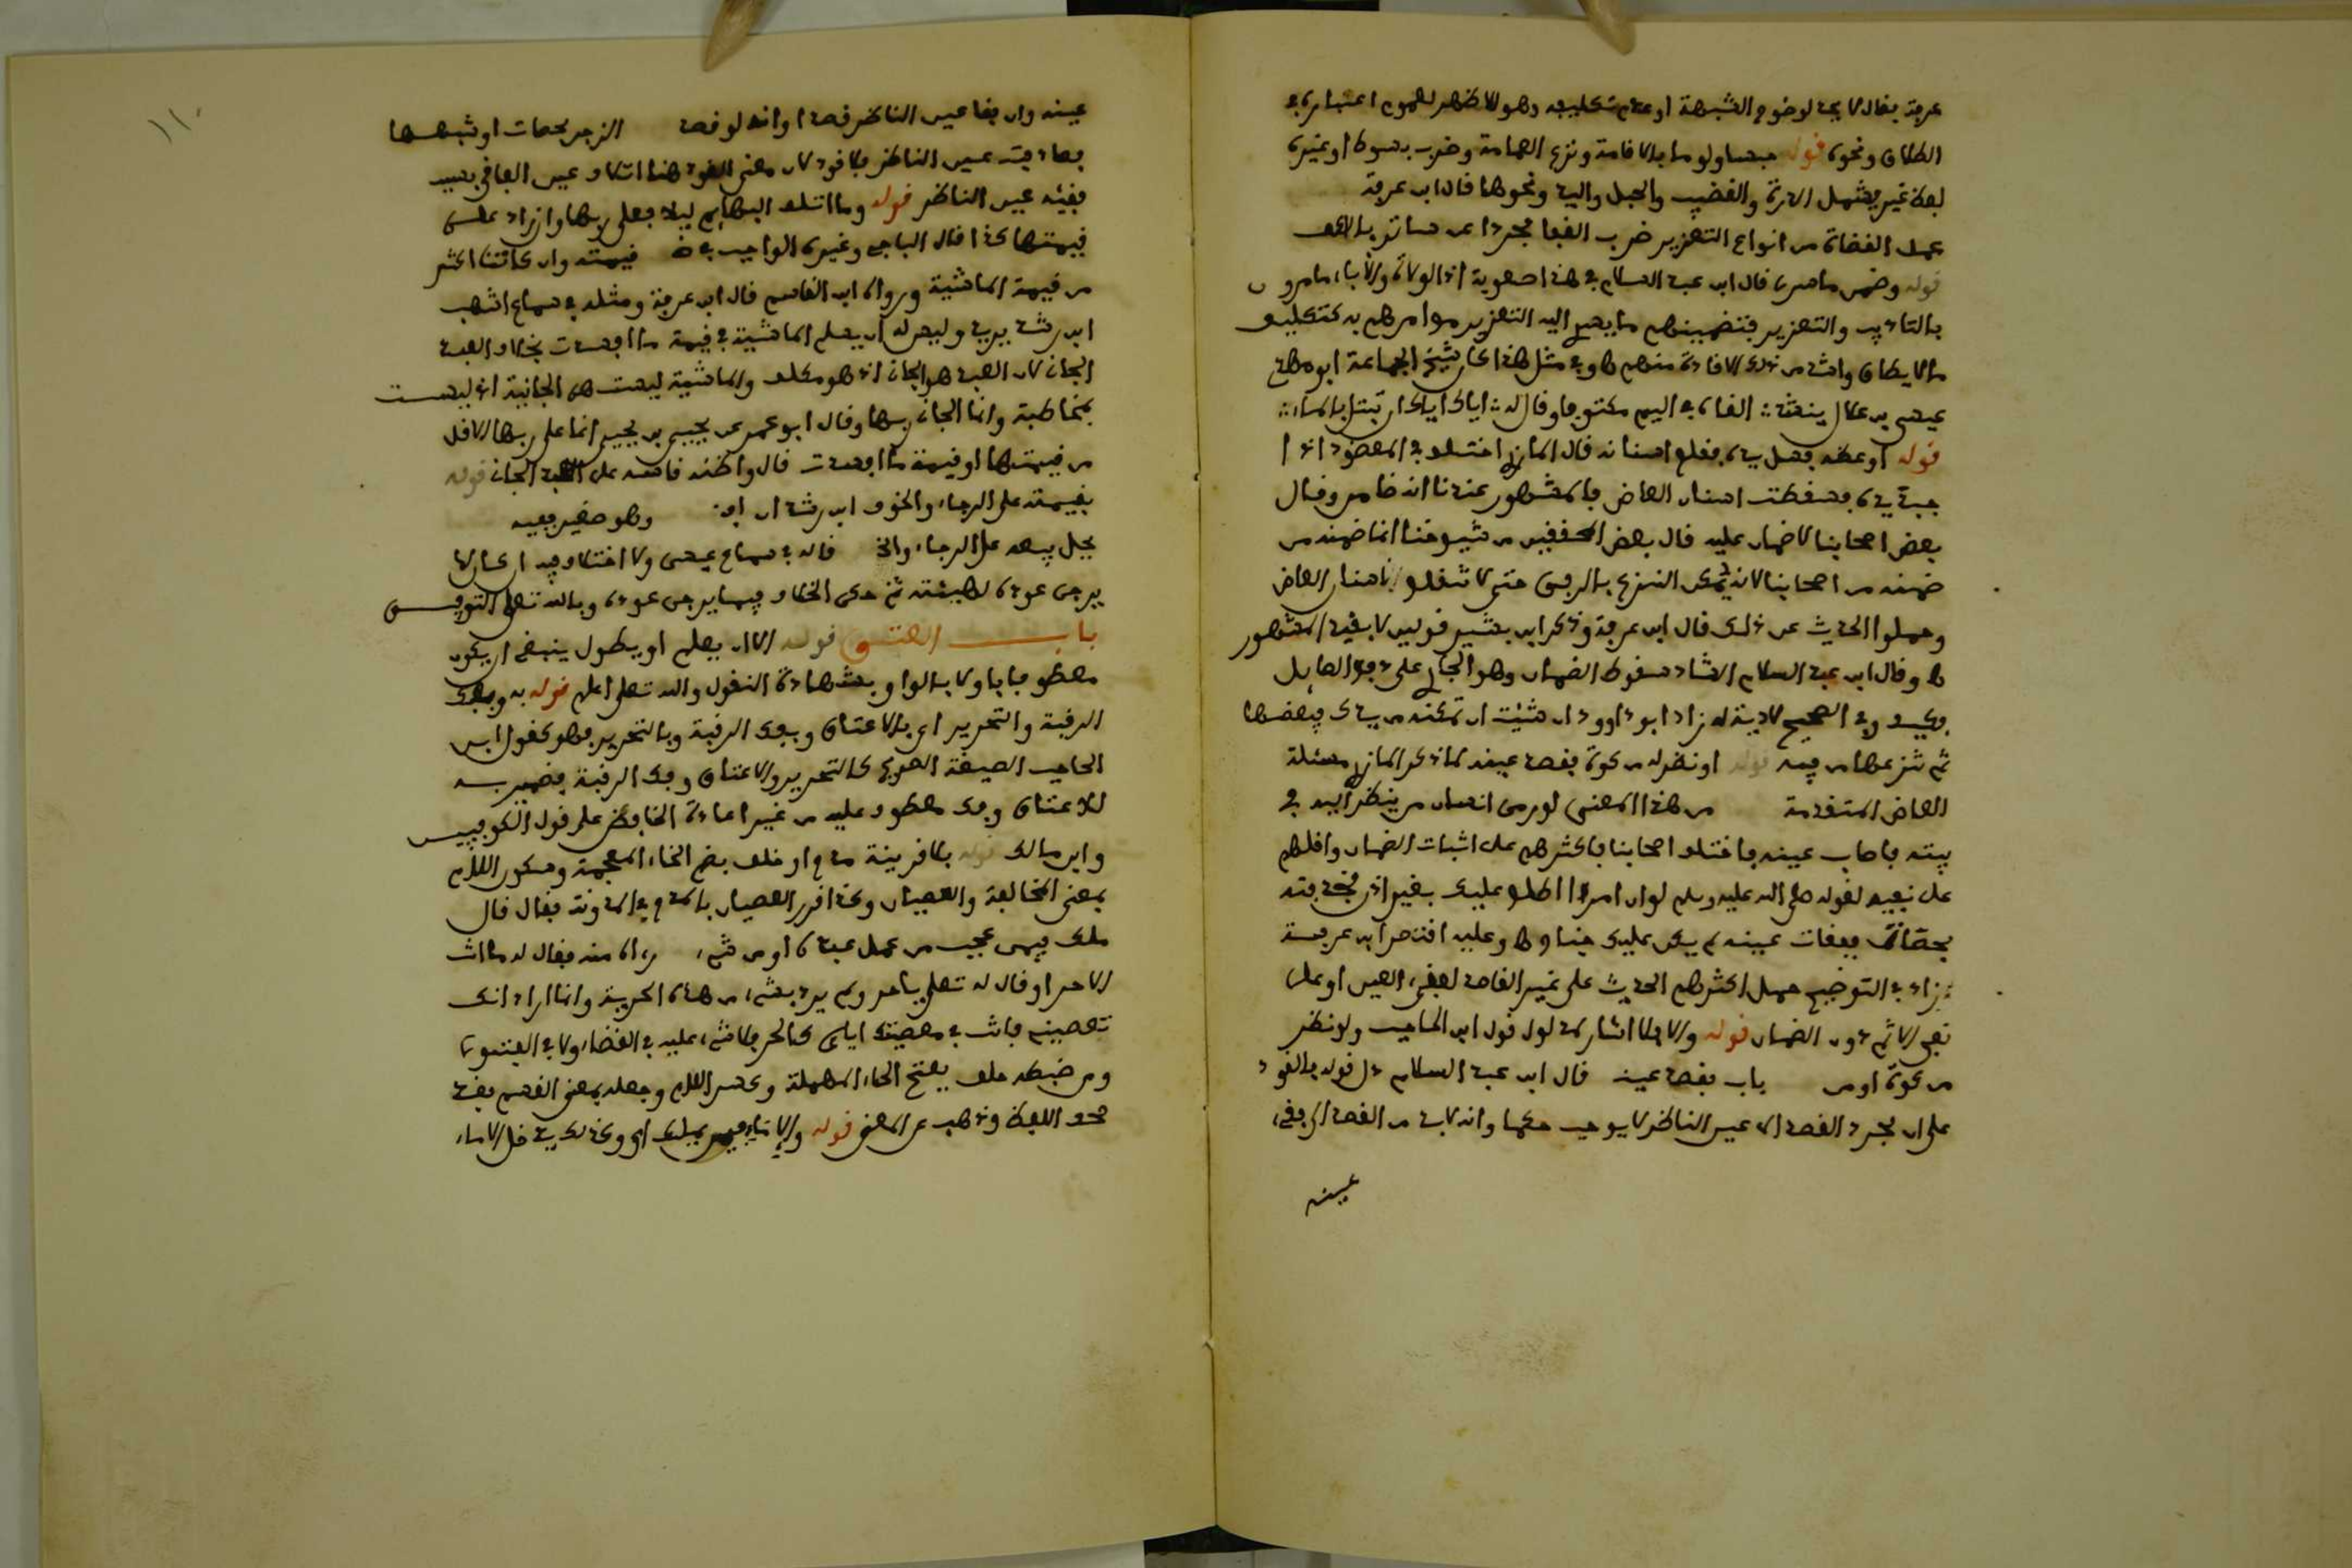 عرفة يقال لا يحد لوضوح الشبهة او عدم تكليفه وهو الاظهر لعموم اعتبار
الطلاق ونحوه قوله حبسا ولوما بالاقامة ونزع العمامة وضرب بسوط او غيره
لفظ غير يشمل الدرة والقضيب والحبل واليد ونحوها قال ابن عرفة
عمل القضاة من انواع التعزير ضرب القفا مجردا عن ساتر بالاكف
قوله وضمن ما سرى قال ابن عبد السلام في هذا صعوبة اذ الولاة والاباء مامورون
بالتاديب والتعزير فتضمينهم ما يصل اليه التعزير مع امرهم به كتكليف
ما لا يطاق
عيسى بن علال ينشد القاه في اليم مكتوفا وقال له اياك اياك ان تبتل بالماء
قوله او عضه فسل يده فقلع اسنانه قال المازري اختلف في المعضوض اذا
جبذ يده فسقطت اسنان العاض فالمشهور عندنا انه ضامن وقال
بعض اصحابنا لا ضمان عليه قال بعض المحققين من شيوخنا انما ضمنه من
ضمنه من اصحابنا لانه يمكن النزع بالرفق حتى لا تنقلع اسنان العاض
وحملوا الحديث على ذلك قال ابن عرفة وذكر ابن بشير قولين لا بقيد المشهور
وقال ابن عبد السلام الشاذ سقوط الضمان وهو الجاري على دفع الصايل
فكيف وفي الصحيح لا دية له زاد ابو داوود ان شئت ان تمكنه من يدك فيعضها
ثم تنزعها من فيه قوله او نظر له من كوة فقصد عينه لما ذكر المازري مسئلة
العاض المتقدمة من هذا المعنى لو رمى انسان من ينظر اليه في
بيته فاصاب عينه فاختلف اصحابنا فاكثرهم على اثبات الضمان واقلهم
على نفيه لقوله صلى الله عليه وسلم لو ان امرءا اطلع عليك بغير اذن فخذفته
بحصاة ففقات عينه لم يكن عليك جناح وعليه اقتصر ابن عرفة
زاد في التوضيح حمل اكثرهم الحديث على غير القاصد لفقء العين او على
نفي الاثم دون الضمان قوله والا فلا اشار لمدلول قول ابن الحاجب ولو نظر
من كوة او من باب فقصد عينه قال ابن عبد السلام دل قوله فالقود
على ان مجرد القصد الى عين الناظر لا يوجب حكما وانه لابد من القصد الى فقء
عينه
١١٠
عينه وان فقا عين الناظر قصدا وانه لو قصد الزجر بحصات او شبهها
فصادفت عين الناظر فلا قود لان معنى القود هنا اتلاف عين الفاقئ بسبب
فقئه عين الناظر قوله وما اتلفت البهايم ليلا فعلى ربها وان زاد على
قيمتها كذا قال الباجي وغيره الواجب قيمته وان كانت اكثر
من قيمة الماشية ورواه ابن القاسم قال ابن عرفة ومثله في سماع اشهب
ابن رشد يريد وليس له ان يسلم الماشية في قيمة ما افسدت بخلاف العبد
الجاني لان العبد هو الجاني اذ هو مكلف والماشية ليست هي الجانية اذ ليست
بمخاطبة وانما الجاني ربها وقال ابو عمر عن يحيى بن يحيى انما على ربها الاقل
من قيمتها او قيمة ما افسدت قال واظنه قاسه على العبد الجاني قوله
بقيمته على الرجاء والخوف ابن رشد ان وهو صغير ففيه
قاله في سماع عيسى ولا اختلاف فيه ان كان لا
يرجى عوده لهيئته ثم حكى الخلاف فيما يرجى عوده وبالله تعلى التوفيق
باب العتق قوله الا ان يعلم او يطول ينبغي ان يكون
معطوفا باو لا بالواو وبشهادة النقول والله تعلى اعلم قوله به وبفك
الرقبة والتحرير اي بالاعتاق وبفك الرقبة وبالتحرير فهو كقول ابن
الحاجب الصيغة الصريح كالتحرير والاعتاق وفك الرقبة فضمير به
للاعتاق وفك معطوف عليه من غير اعادة الخافض على قول الكوفيين
وابن مالك قوله بلا قرينة مدح او خلف بضم الخاء المعجمة وسكون اللام
بمعنى المخالفة والعصيان وكذا قرر العصيان بالمدح في المدونة فقال قال
ملك فيمن عجب من عمل عبده او من شيء رءاه منه فقال له ما انت
الا حر او قال له تعلى يا حر ولم يرد بشيء من هذه الحرية وانما اراد انك
تعصيني فانت في معصيتك اياي كالحر فلا شيء عليه في القضاء ولا في الفتوى
ومن ضبطه حلف بفتح الحاء المهملة وكسر اللام وجعله بمعنى القسم فقد
صحف اللفظ وذهب عن المعنى قوله والاماء فيمن يملك اي وكذلك يدخل الاماء